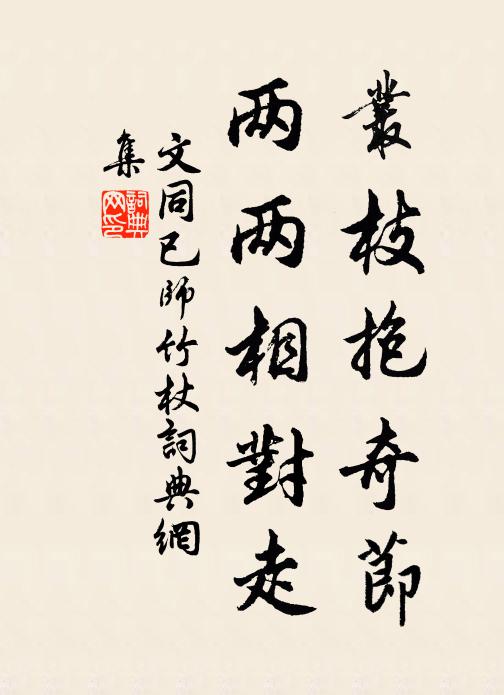 叢枝抱奇節
两两相對走
文同已師竹杖詞典網
集
詞典
网印